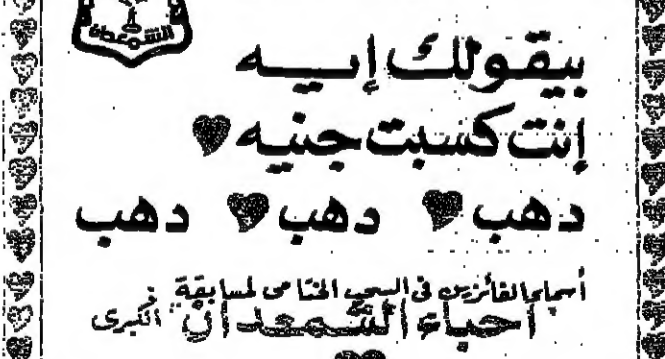 الشمعدان
بيقولك إيه
إنت كسبت جنيه
دهب دهب دهب
أسماء الفائزين في السحب الختامى لمسابقة
"أحباء الشمعدان" الكبرى